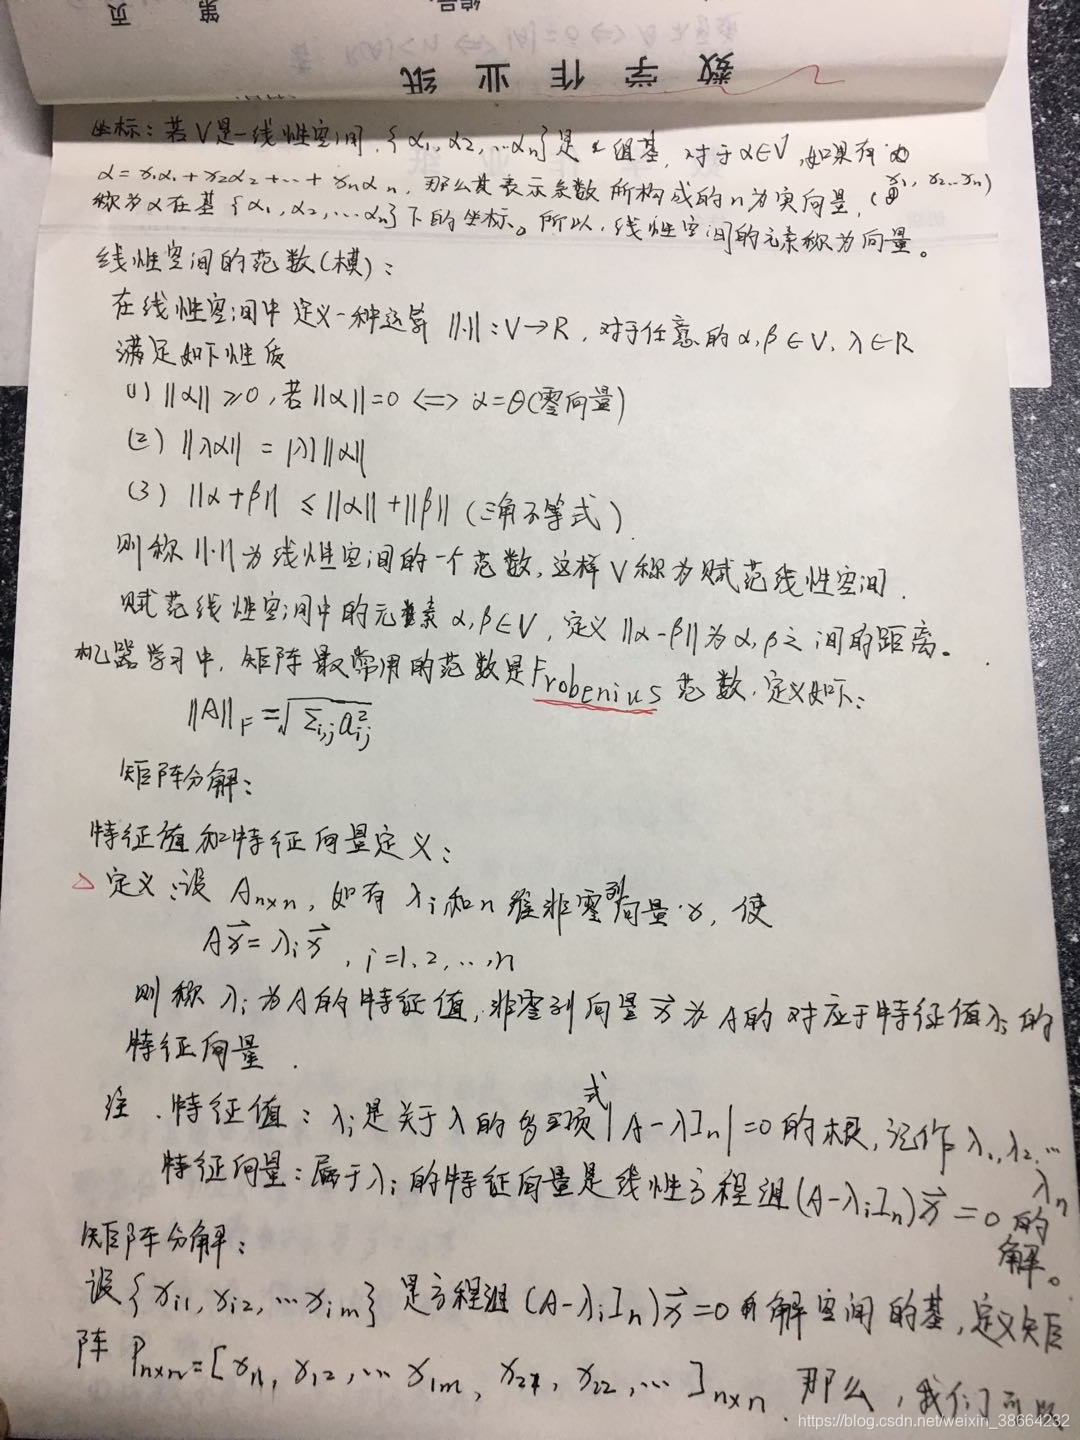 页 第 编号
数学作业纸
坐标：若V是一线性空间，{α1, α2, …αn}是一组基，对于α∈V，如果有
α=x1α1+x2α2+…+xnαn，那么其表示系数所构成的n为实向量，(x1, x2…xn)
称为α在基{α1, α2, …αn}下的坐标。所以，线性空间的元素称为向量。
线性空间的范数(模)：
在线性空间中定义一种运算 ||·||：V→R，对于任意的α,β∈V，λ∈R
满足如下性质
(1) ||α||≥0，若||α||=0 <=> α=θ(零向量)
(2) ||λα|| = |λ| ||α||
(3) ||α+β|| ≤ ||α||+||β|| (三角不等式)
则称||·||为线性空间的一个范数，这样V称为赋范线性空间.
赋范线性空间中的元素α,β∈V，定义||α-β||为α,β之间的距离。
机器学习中，矩阵最常用的范数是Frobenius范数，定义如下：
||A||F = √Σi,j a²ij
矩阵分解：
特征值和特征向量定义：
△ 定义：设 An×n，如有 λi和n维非零列向量x，使
Ax⃗=λix⃗，i=1,2,…,n
则称λi为A的特征值，非零列向量x⃗为A的对应于特征值λi的
特征向量.
注. 特征值：λi是关于λ的多项式|A-λIn|=0的根，记作λ1,λ2,…
λn
特征向量：属于λi的特征向量是线性方程组(A-λiIn)x⃗=0的
解。
矩阵分解：
设{xi1, xi2, …xim}是方程组(A-λiIn)x⃗=0的解空间的基，定义矩
阵 Pn×n=[x11, x12, … x1m, x21, x22, … ]n×n. 那么，我们可以
https://blog.csdn.net/weixin_38664232